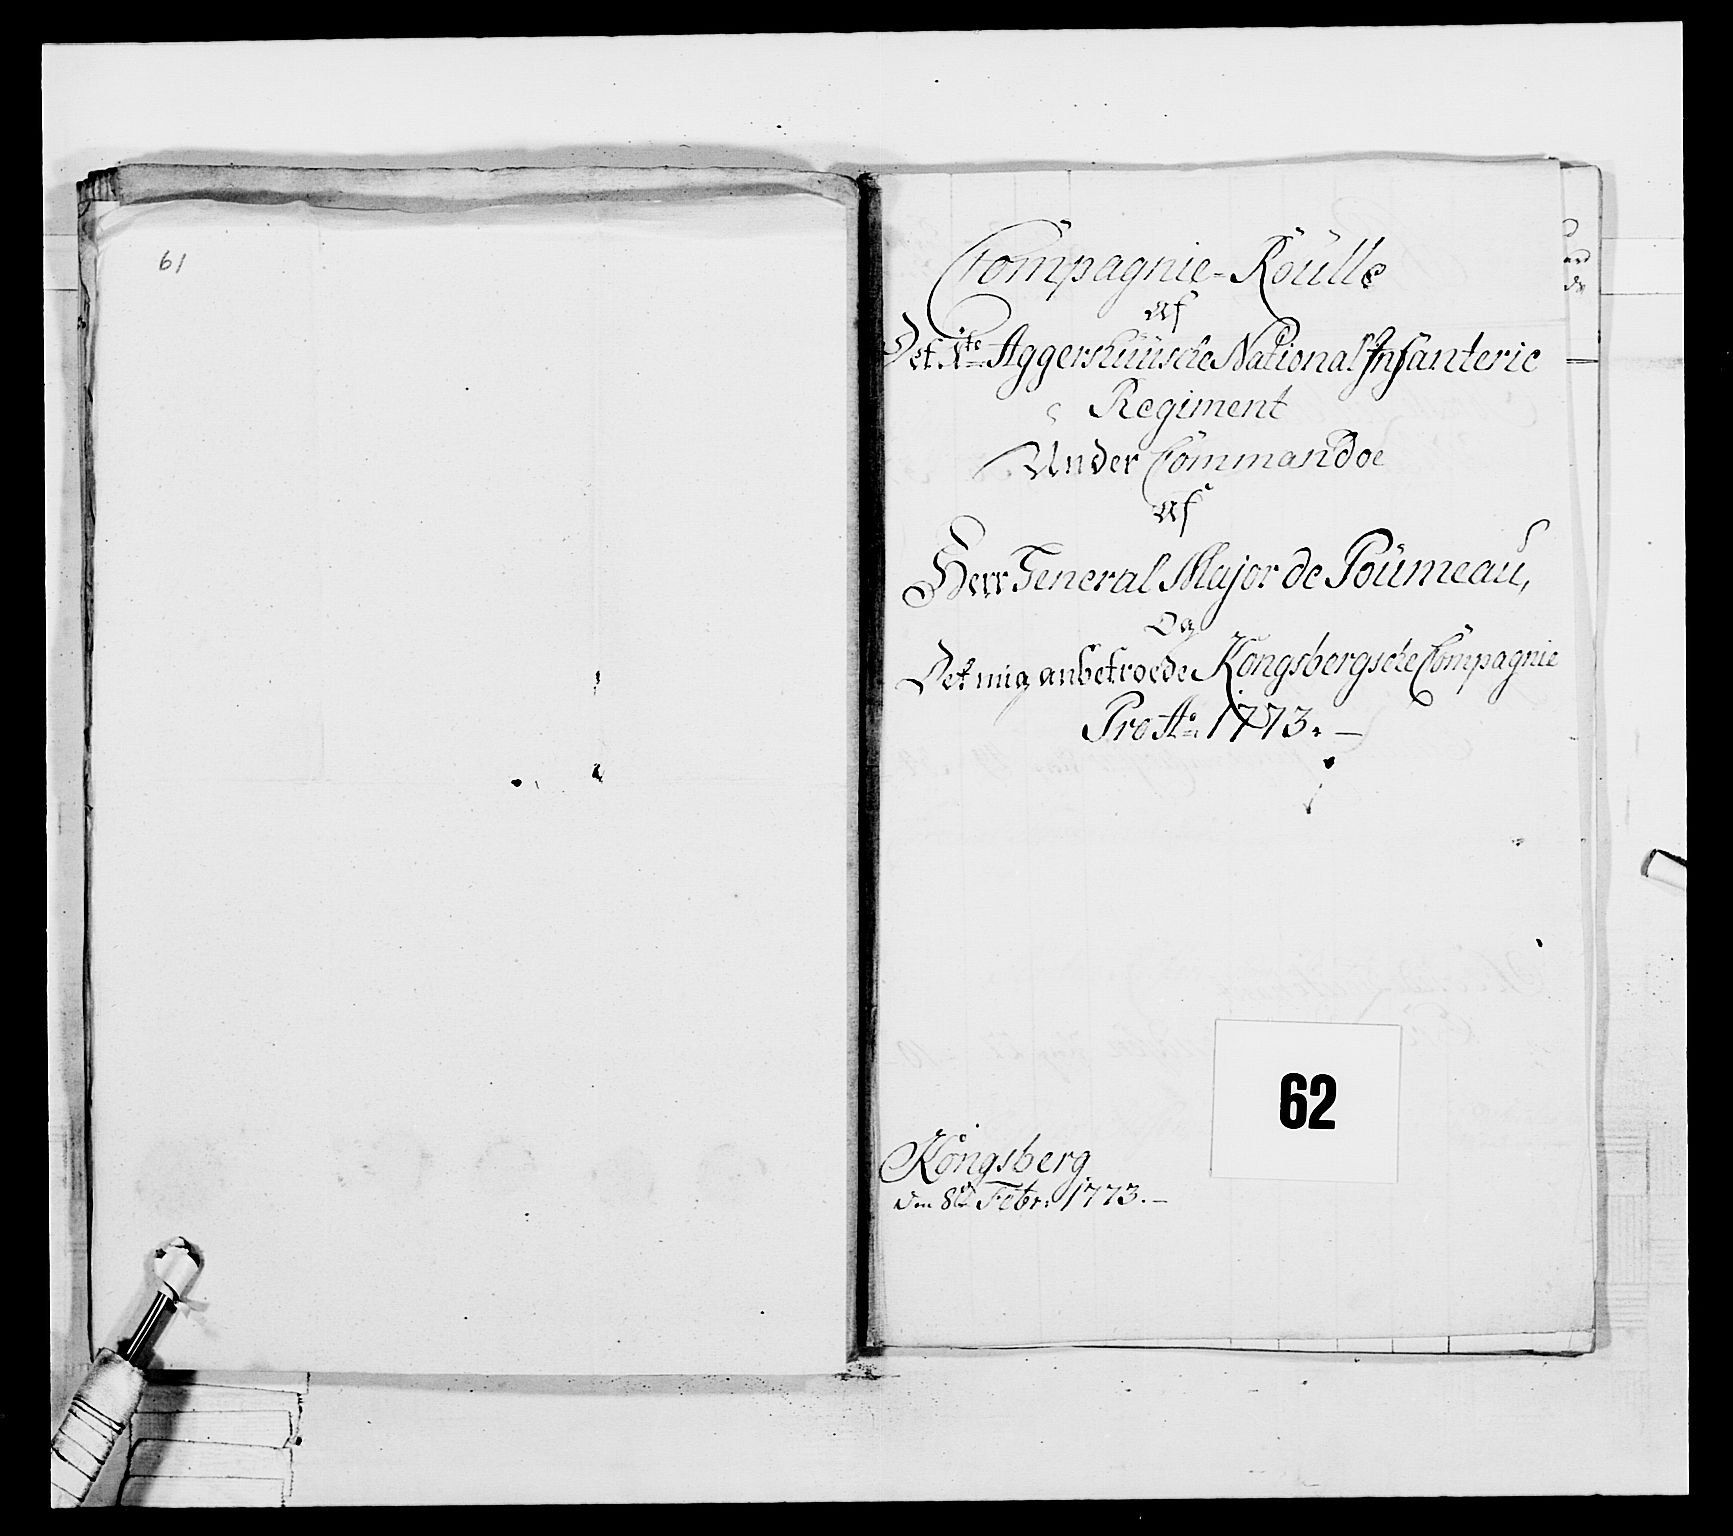 61
Compagnie-Roülle
Af
Det 1te Aggershuusche National Infanterie
Regiment
Under Commandoe
Af
Herr General Major de Poümeau,
Og
Det mig anbetroede Kongsbergsche Compagnie
Pro Ao 1773. –
62
Kongsberg
den 8de Febr: 1773. –